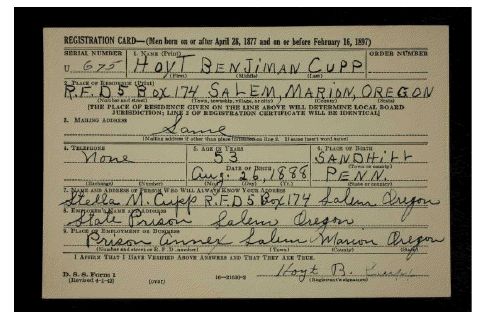 REGISTRATION CARD—(Men born on or after April 28, 1877 and on or before February 16, 1897)
SERIAL NUMBER 1. NAME (Print) ORDER NUMBER
U 675 HOYT BENJIMAN CUPP
(First) (Middle) (Last)
2. PLACE OF RESIDENCE (Print)
R.F.D 5 Box 174 SALEM, MARION, OREGON
(Number and street) (Town, township, village, or city) (County) (State)
[THE PLACE OF RESIDENCE GIVEN ON THE LINE ABOVE WILL DETERMINE LOCAL BOARD
JURISDICTION; LINE 2 OF REGISTRATION CERTIFICATE WILL BE IDENTICAL]
3. MAILING ADDRESS
Same
[Mailing address if other than place indicated on line 2. If same insert word same]
4. TELEPHONE 5. AGE IN YEARS 6. PLACE OF BIRTH
None 53 SANDHILL
DATE OF BIRTH (Town or county)
Aug. 26, 1888 PENN.
(Exchange) (Number) (Mo.) (Day) (Yr.) (State or country)
7. NAME AND ADDRESS OF PERSON WHO WILL ALWAYS KNOW YOUR ADDRESS
Stella M. Cupp R.F.D 5 Box 174 Salem Oregon
8. EMPLOYER'S NAME AND ADDRESS
State Prison Salem Oregon
9. PLACE OF EMPLOYMENT OR BUSINESS
Prison Annex Salem Marion Oregon
(Number and street or R. F. D. number) (Town) (County) (State)
I AFFIRM THAT I HAVE VERIFIED ABOVE ANSWERS AND THAT THEY ARE TRUE.
Hoyt B. Cupp
D. S. S. Form 1
(Revised 4-1-42) (over) 16—21630-2 (Registrant's signature)